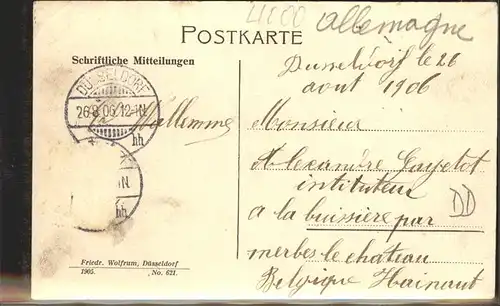 4200 allemagne
POSTKARTE
Schriftliche Mitteilungen
Dusseldorf le 26
aout 1906
DÜSSELDORF
26.8.06.12-1N
hh
Mallemme
Monsieur
Alexandre Gayetot
instituteur
DD
a la buissière par
merbes le chateau
Belgique Hainaut
1N
hh
Friedr. Wolfrum, Düsseldorf
1905. No. 621.